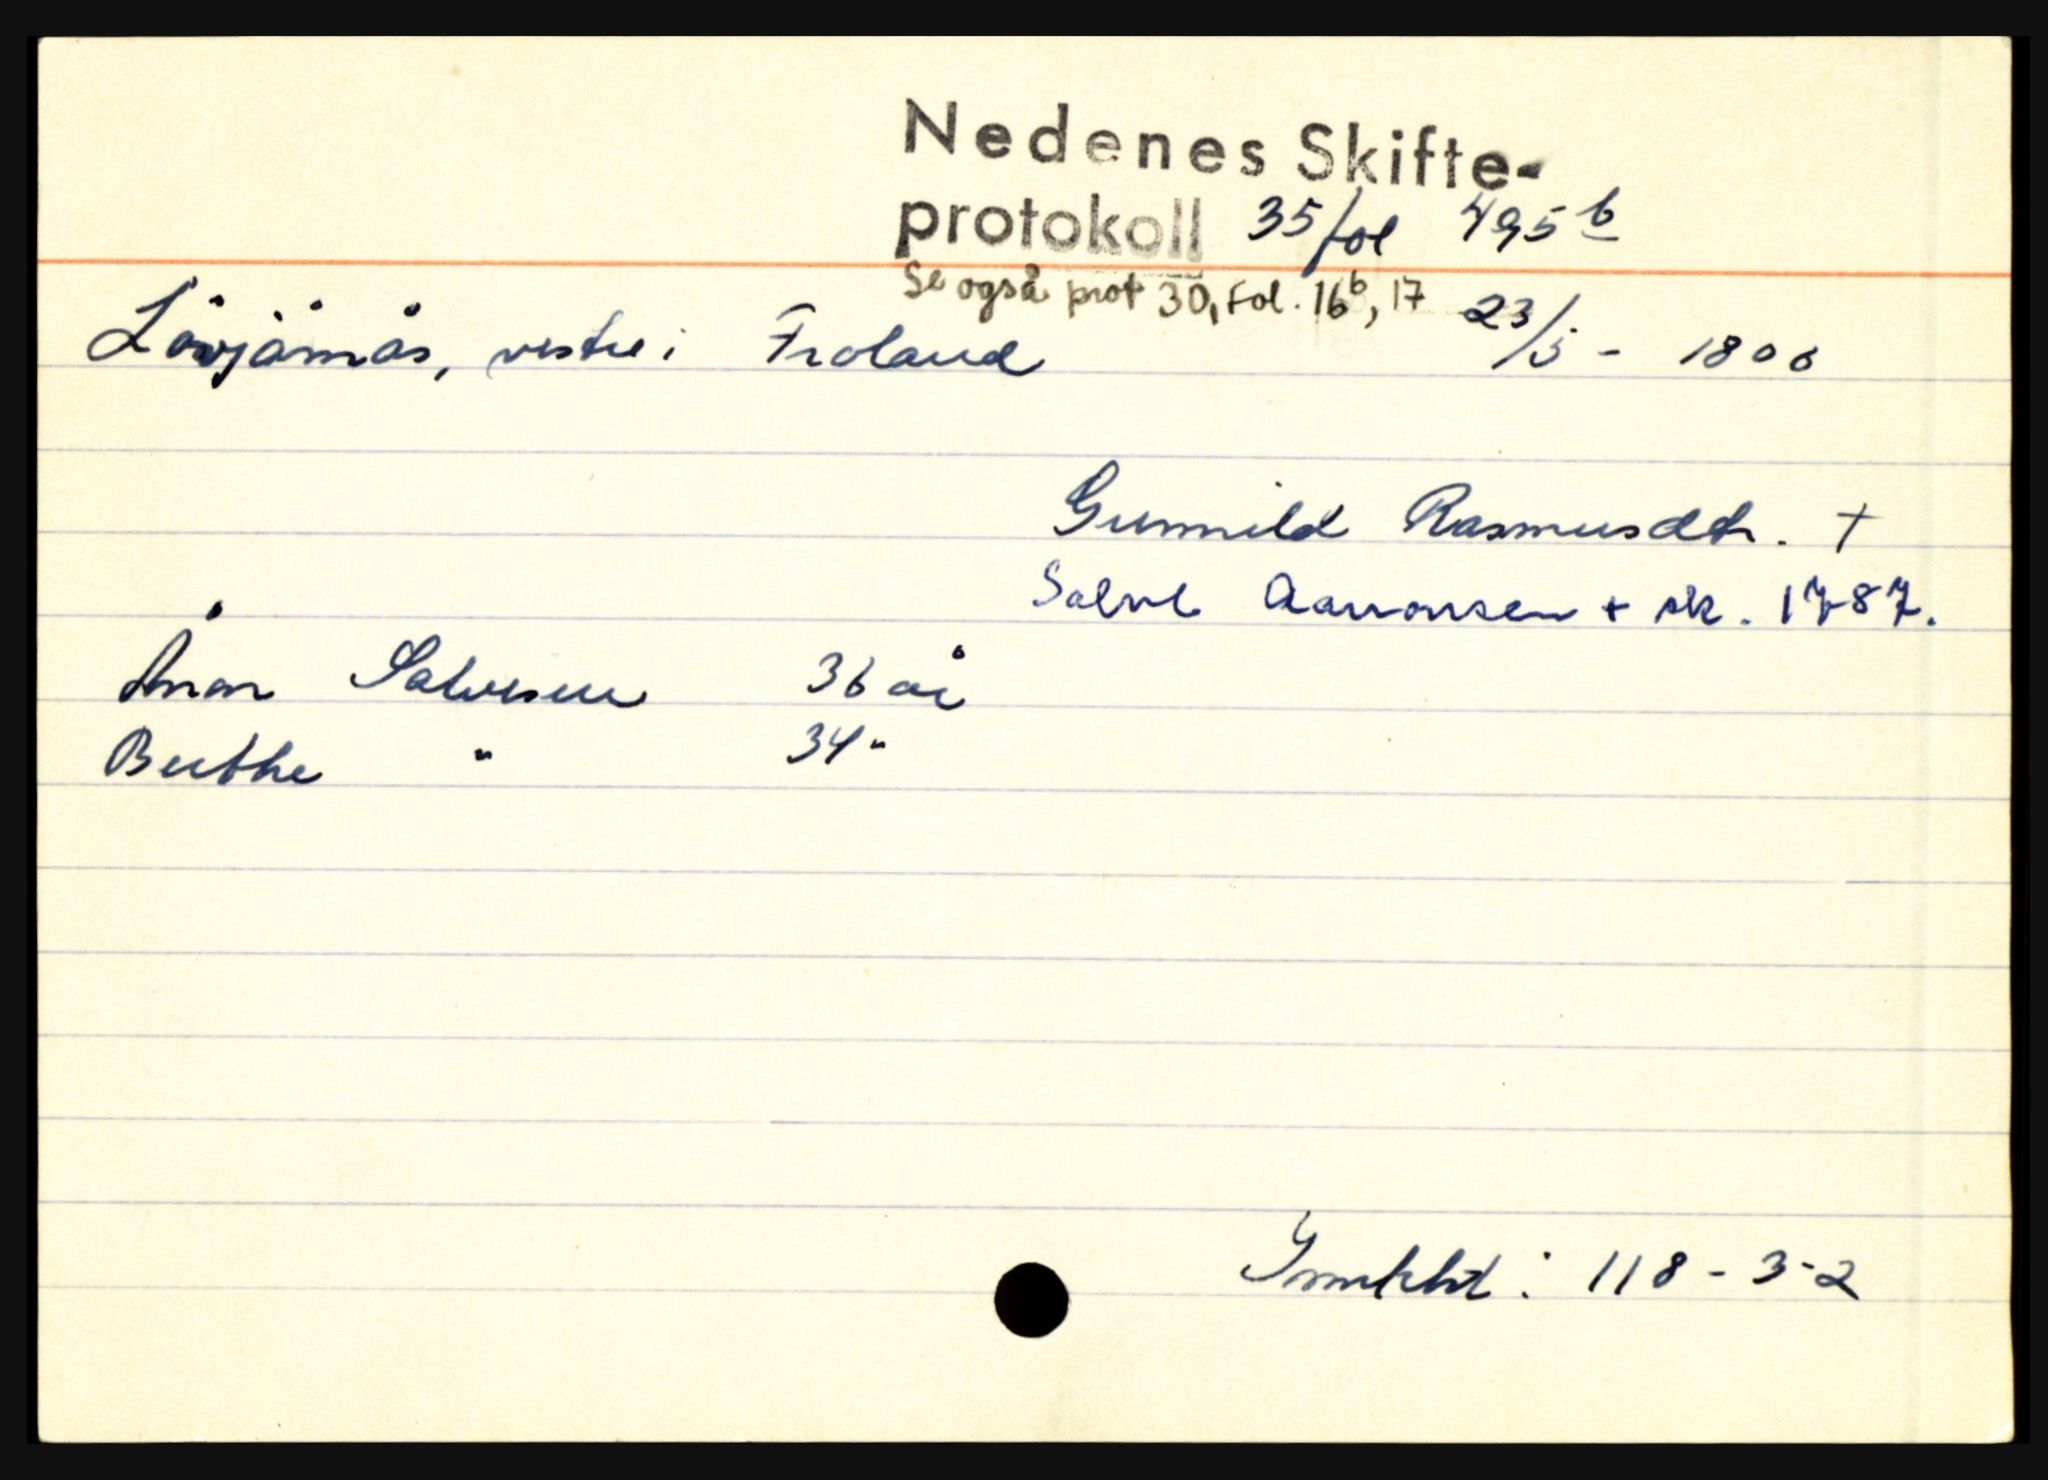 Nedenes Skifte-
protokoll 35/fol 495 b
Se også prot 30, Fol. 16b, 17
Låvjåmås, vestre i Froland 23/5 - 1806
Gunnild Rasmusdtr. +
Salve Aanonsen + sk. 1787.
Ånon Salvesen 36 år
Berthe " 34 "
118-3-2